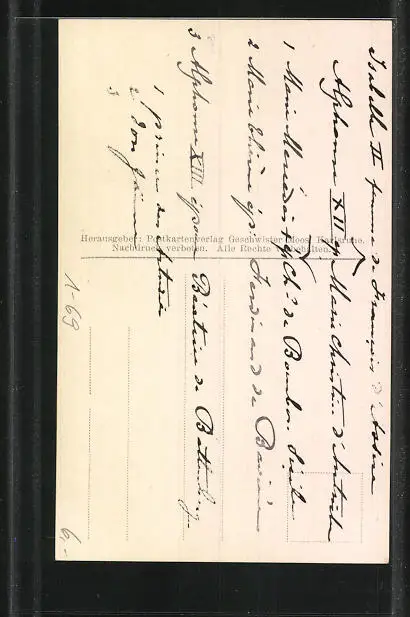 Isabelle II femme de François d'Assise
Alphonse XII ép. Marie Christine d'Autriche
1 Marie Mercédès + ép Ch. de Bourbon Sicile
2 Marie Thérèse ép. Ferdinand de Bavière
3 Alphonse XIII épouse Béatrice de Battenberg
1 prince des Asturies
2 Don Jaime
3
Herausgeber: Postkartenverlag Geschwister Moos, Karlsruhe.
Nachdruck verboten. Alle Rechte vorbehalten.
1-69
6,-